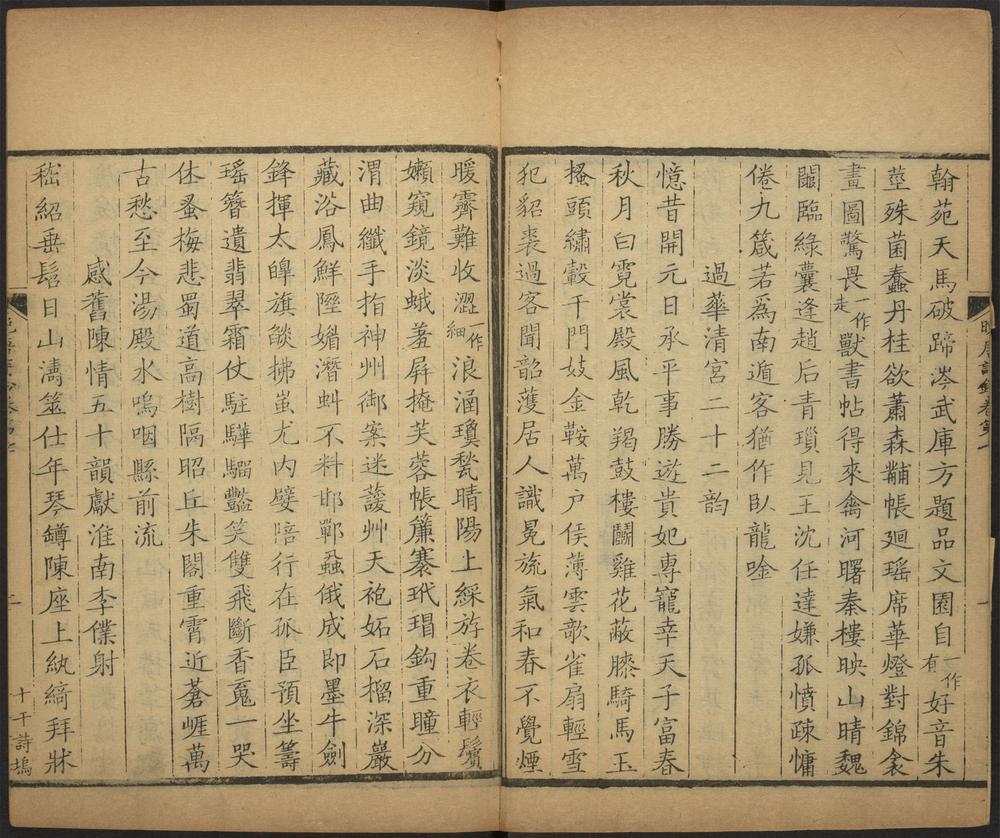 翰苑天馬破蹄涔武庫方題品文園自一作有好音朱
莖殊菌蠢丹桂欲蕭森黼帳廻瑶席華燈對錦衾
畫圖驚畏一作走獸書帖得來禽河曙秦樓映山晴魏
闕臨綠囊逢趙后青瑣見王沈任達嫌孤憤疎慵
倦九箴若爲南遁客猶作臥龍唫
過華清宮二十二韵
憶昔開元日承平事勝遊貴妃專寵幸天子富春
秋月白霓裳殿風乾羯鼓樓鬬雞花蔽膝騎馬玉
搔頭繡轂千門妓金鞍萬户侯薄雲欹雀扇輕雪
犯貂裘過客聞韶濩居人識冕旒氣和春不覺煙
暖霽難收澀一作細浪涵瓊甃晴陽上綵斿卷衣輕鬢
嬾窺鏡淡蛾羞屏掩芙蓉帳簾褰玳瑁鈎重瞳分
渭曲纖手指神州御案迷萲艸天袍妬石榴深巖
藏浴鳳鮮隰媚潛虯不料邯鄲蝨俄成即墨牛劍
鋒揮太皥旗燄拂蚩尤内嬖陪行在孤臣預坐籌
瑶簪遺翡翠霜仗駐驊騮豔笑雙飛斷香䰟一哭
休蚤梅悲蜀道高樹隔昭丘朱閣重霄近蒼崕萬
古愁至今湯殿水嗚咽縣前流
感舊陳情五十韻獻淮南李僕射
嵇紹垂髫日山濤筮仕年琴罇陳座上紈綺拜牀
十千詩塢